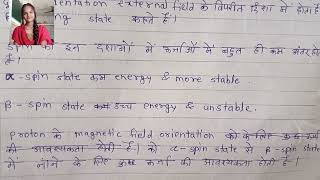 orientation external field के विपरीत दिशा में होता है
state कहते हैं।
Spin की इन दशाओं में ऊर्जाओं में बहुत ही कम अंतर
α-spin state कम energy & more stable.
β- spin state उच्च energy & unstable.
proton के magnetic field orientation को के लिए कुछ ऊर्जा
की आवश्यकता होती है। को α-spin state से β-spin state
में जाने के लिए कुछ ऊर्जा की आवश्यकता होती है।